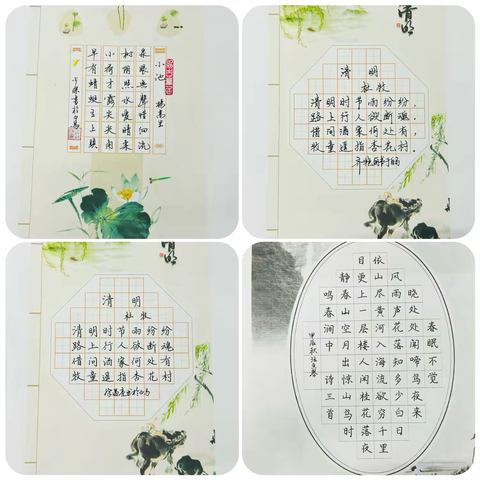 小池
杨万里
泉眼無聲惜细流
树阴照水爱晴柔
小荷才露尖尖角
早有蜻蜓立上頭
清明
清明
杜牧
清明时节雨纷纷，
路上行人欲断魂．
借问酒家何处有，
牧童遥指杏花村．
清明
清明
杜牧
清明时节雨纷纷
路上行人欲断魂
借问酒家何处有
牧童遥指杏花村
春眠不觉
晓处处闻啼鸟夜来
风雨声花落知多少白日
依山尽黄河入海流欲穷千里
目更上一层楼人闲桂花落夜
静春山空月出惊山鸟时
鸣春涧中 诗三首